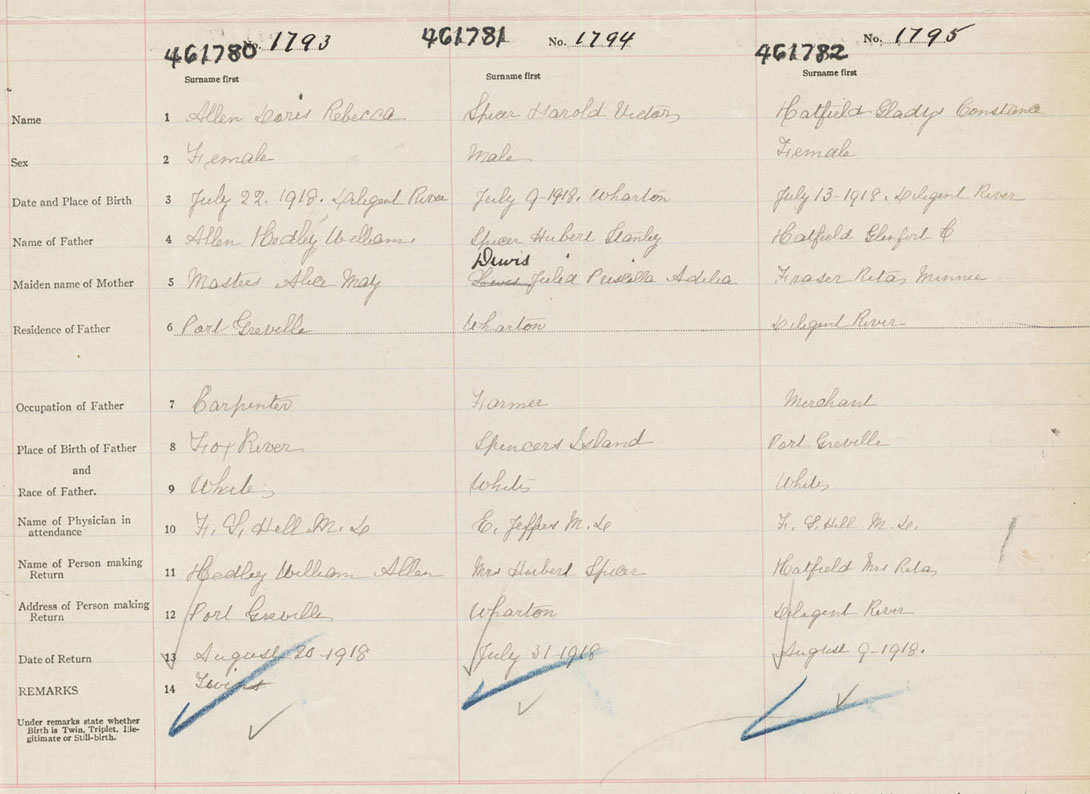 461780 No. 1793 461781 No. 1794 461782 No. 1795
Surname first Surname first Surname first
Name 1 Allen Doris Rebecca Spicer Harold Victor Hatfield Gladys Constance
Sex 2 Female Male Female
Date and Place of Birth 3 July 22. 1918. Diligent River July 9-1918. Wharton July 13-1918. Diligent River
Name of Father 4 Allen Hedley William. Spicer Hubert Stanley Hatfield C
Dewis
Maiden name of Mother 5 Masters Alice May Julia Priscilla Adelia Fraser Reta Minnie
Residence of Father 6 Port Greville Wharton Diligent River
Occupation of Father 7 Carpenter Farmer Merchant
Place of Birth of Father 8 Fox River Spencers Island Port Greville
and
Race of Father. 9 White White White
Name of Physician in
attendance 10 F. S. Hill M. D. E. Jeffers M. D. F. S. Hill M. D.
Name of Person making
Return 11 Hedley William Allen Mrs Hubert Spicer Hatfield Mrs Reta
Address of Person making
Return 12 Port Greville Wharton Diligent River
Date of Return 13 August 20-1918 July 31-1918 August 9-1918.
REMARKS 14
Under remarks state whether
Birth is Twin, Triplet, Ille-
gitimate or Still-birth.